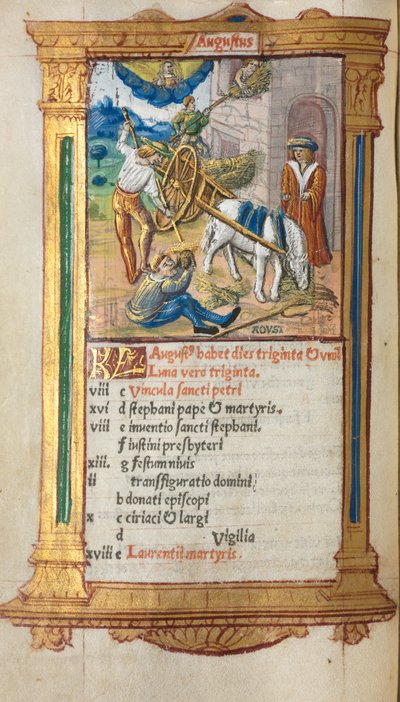 Augustus
AOUST
KL Augustꝰ habet dies triginta & vnū
Luna vero triginta.
viii c Vincula sancti petri
xvi d stephani pape & martyris.
viii e inventio sancti stephani.
f iustini presbyteri
xiii. g festum nivis
ii transfiguratio domini
b donati episcopi
x c ciriaci & largi
d Vigilia
xviii e Laurentii martyris.